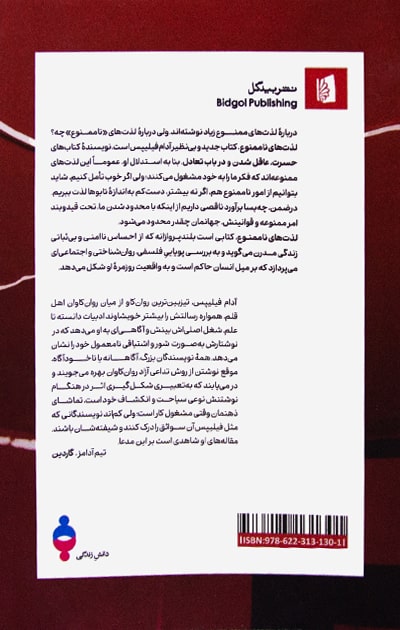 نشر بیدگل
Bidgol Publishing
دربارهٔ لذت‌های ممنوع زیاد نوشته‌اند ولی دربارهٔ لذت‌های «ناممنوع» چه؟
لذت‌های ناممنوع، کتاب جدید و بی‌نظیر آدام فیلیپس است، نویسندهٔ کتاب‌های
حسرت، عاقل شدن و در باب تعادل. بنا به استدلال او، عموماً این لذت‌های
ممنوعه‌اند که فکر ما را به خود مشغول می‌کنند؛ ولی اگر خوب تأمل کنیم، شاید
بتوانیم از امور ناممنوع هم، اگر نه بیشتر، دست‌کم به‌اندازهٔ تابوها لذت ببریم.
در ضمن، چه‌بسا برآورد ناقصی داریم از اینکه با محدود شدن ما، تحت قیدوبند
امر ممنوعه و قوانینش، جهانمان چقدر محدود می‌شود.
لذت‌های ناممنوع، کتابی است بلندپروازانه که از احساس ناامنی و بی‌ثباتی
زندگی مدرن می‌گوید و به بررسی پویایی فلسفی، روان‌شناختی و اجتماعی‌ای
می‌پردازد که بر میل انسان حاکم است و به واقعیت روزمرهٔ او شکل می‌دهد.
آدام فیلیپس، تیزبین‌ترین روان‌کاو از میان روان‌کاوان اهل
قلم، همواره رسالتش را بیشتر خویشاوند ادبیات دانسته تا
علم. شغل اصلی‌اش بینش و آگاهی‌ای به او می‌دهد که در
نوشتارش به‌صورت شور و اشتیاقی نامعمول خود را نشان
می‌دهد. همهٔ نویسندگان بزرگ، آگاهانه یا ناخودآگاه،
موقع نوشتن از روش تداعی آزاد روان‌کاوان بهره می‌جویند و
در می‌یابند که به‌تعبیری شکل‌گیری اثر در هنگام
نوشتنش نوعی سیاحت و انکشاف خود است، تماشای
ذهنمان وقتی مشغول کار است؛ ولی کم‌اند نویسندگانی که
مثل فیلیپس آن سوائق را درک کنند و شیفته‌شان باشند.
مقاله‌های او شاهدی است بر این مدعا.
تیم آدامز، گاردین
ISBN: 978-622-313-130-1
دانشِ زندگی